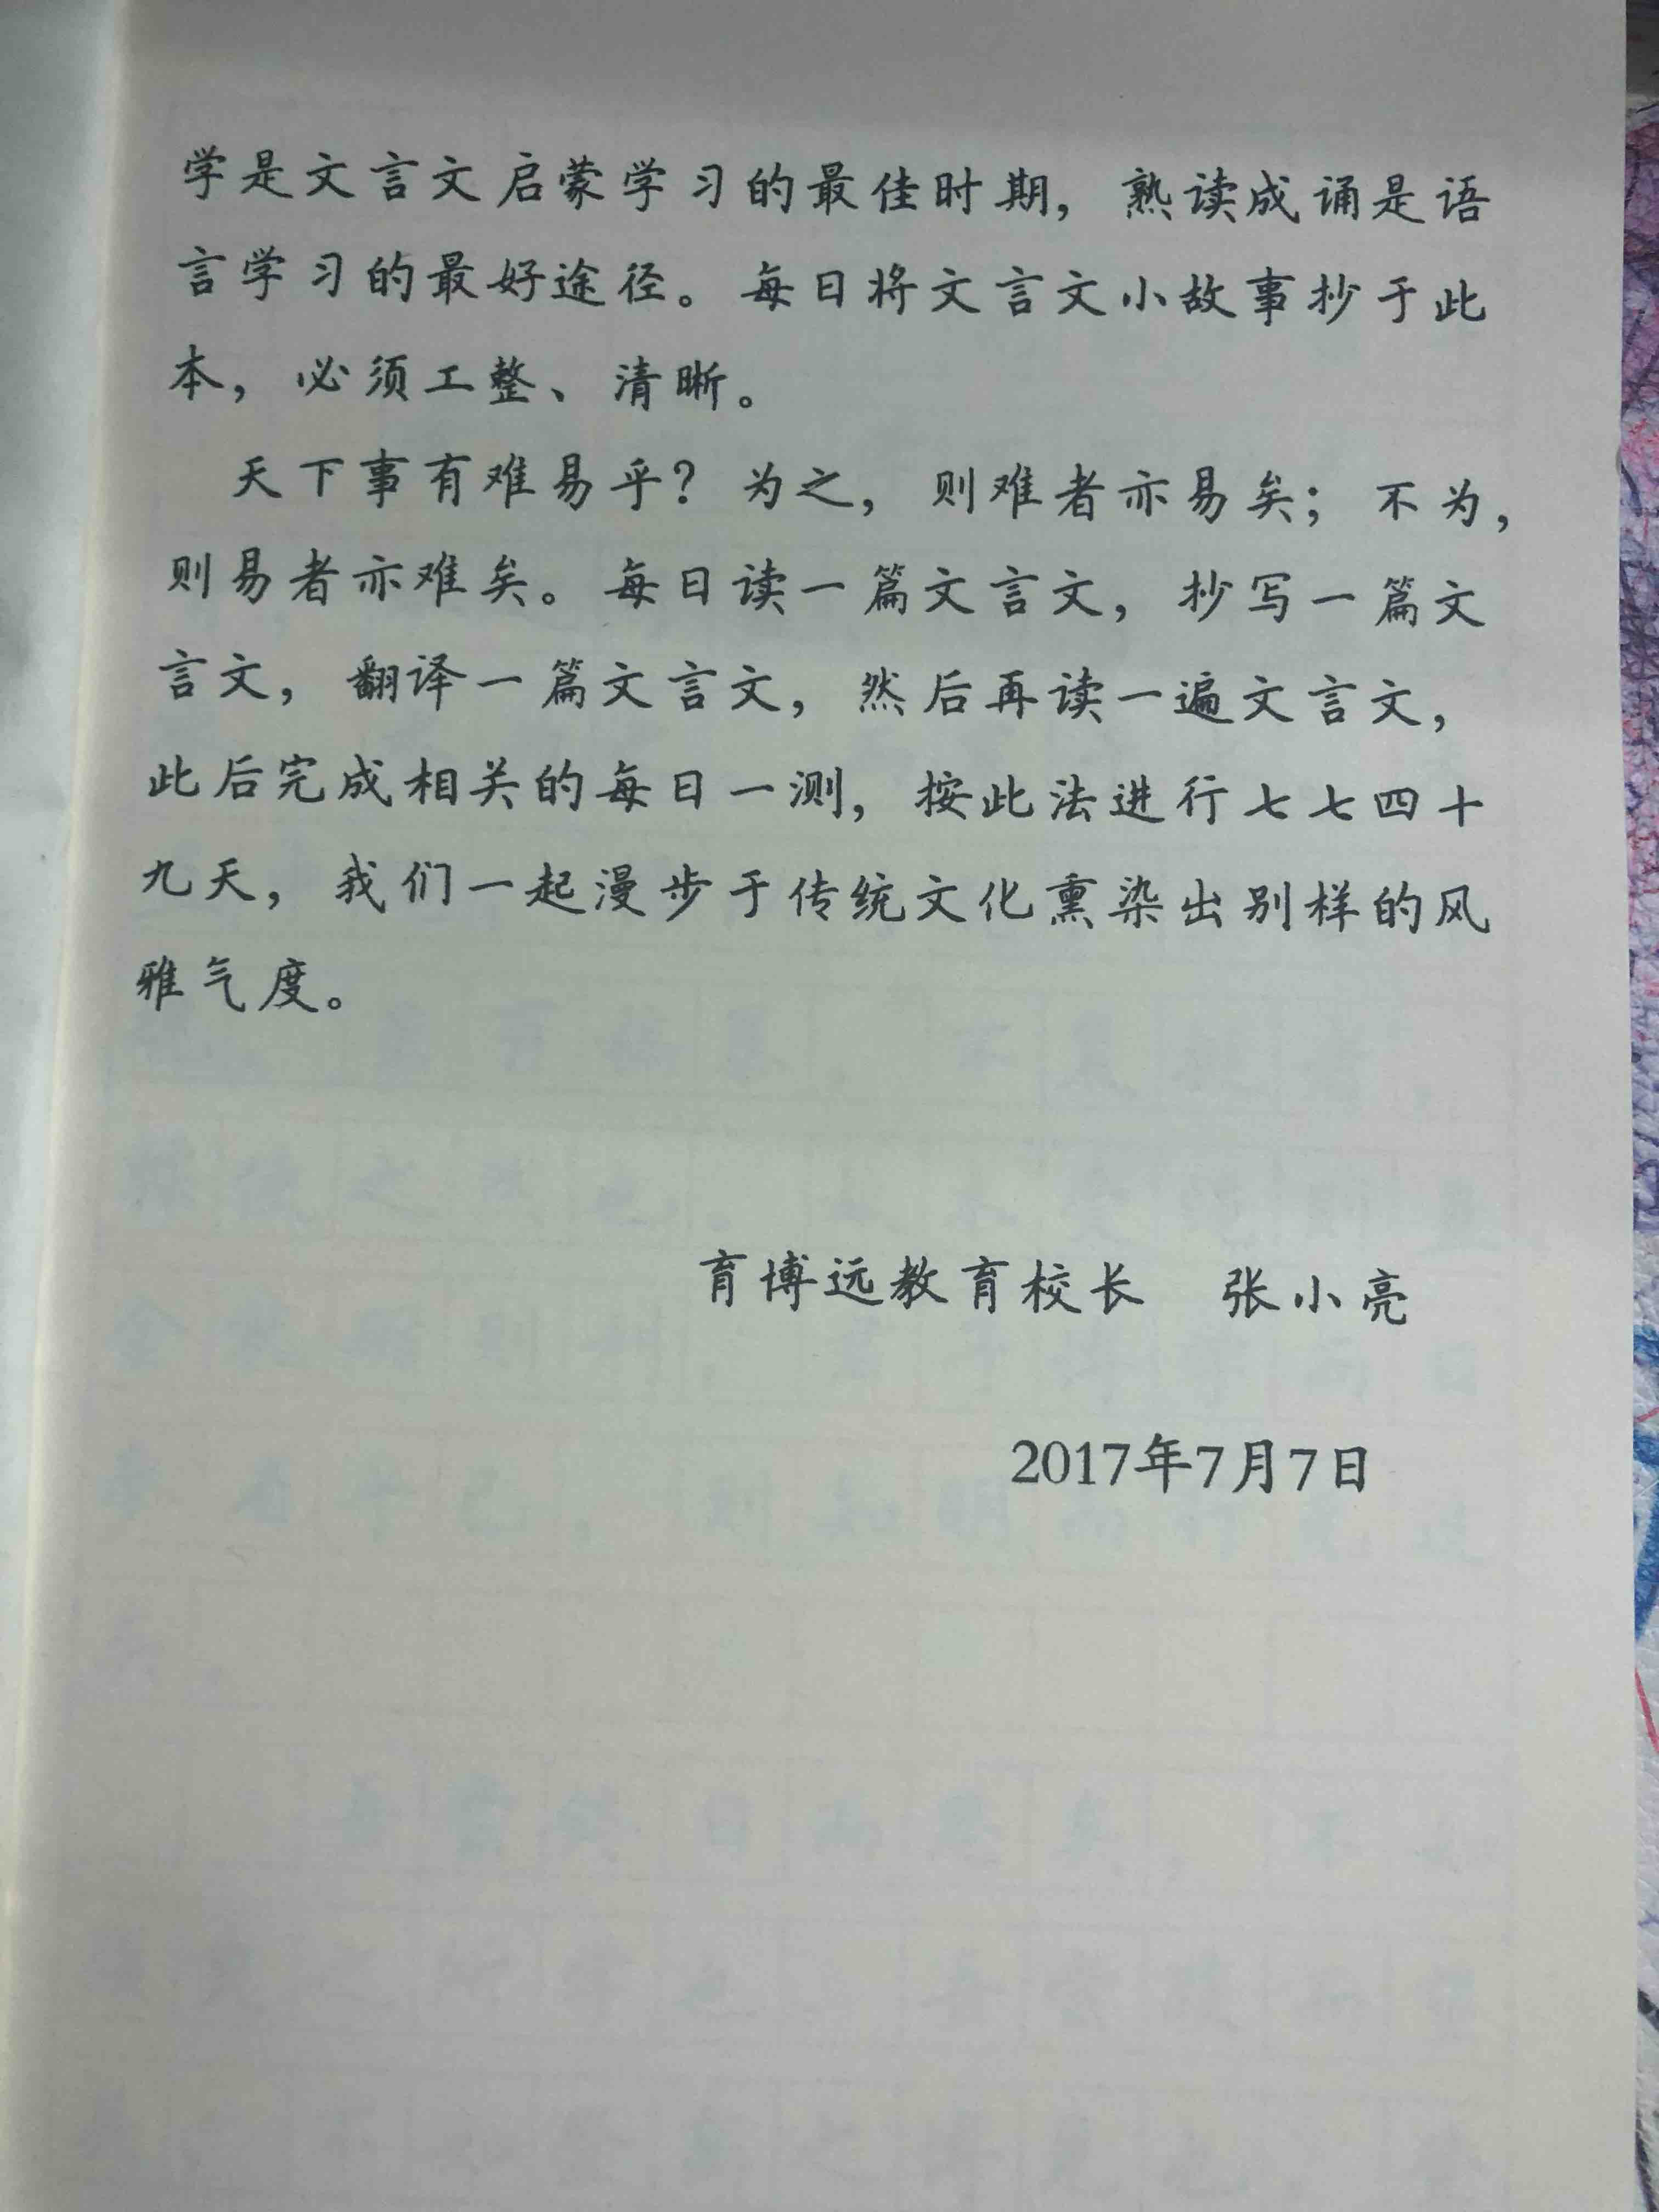 学是文言文启蒙学习的最佳时期，熟读成诵是语
言学习的最好途径。每日将文言文小故事抄于此
本，必须工整、清晰。
天下事有难易乎？为之，则难者亦易矣；不为，
则易者亦难矣。每日读一篇文言文，抄写一篇文
言文，翻译一篇文言文，然后再读一遍文言文，
此后完成相关的每日一测，按此法进行七七四十
九天，我们一起漫步于传统文化熏染出别样的风
雅气度。
育博远教育校长 张小亮
2017年7月7日